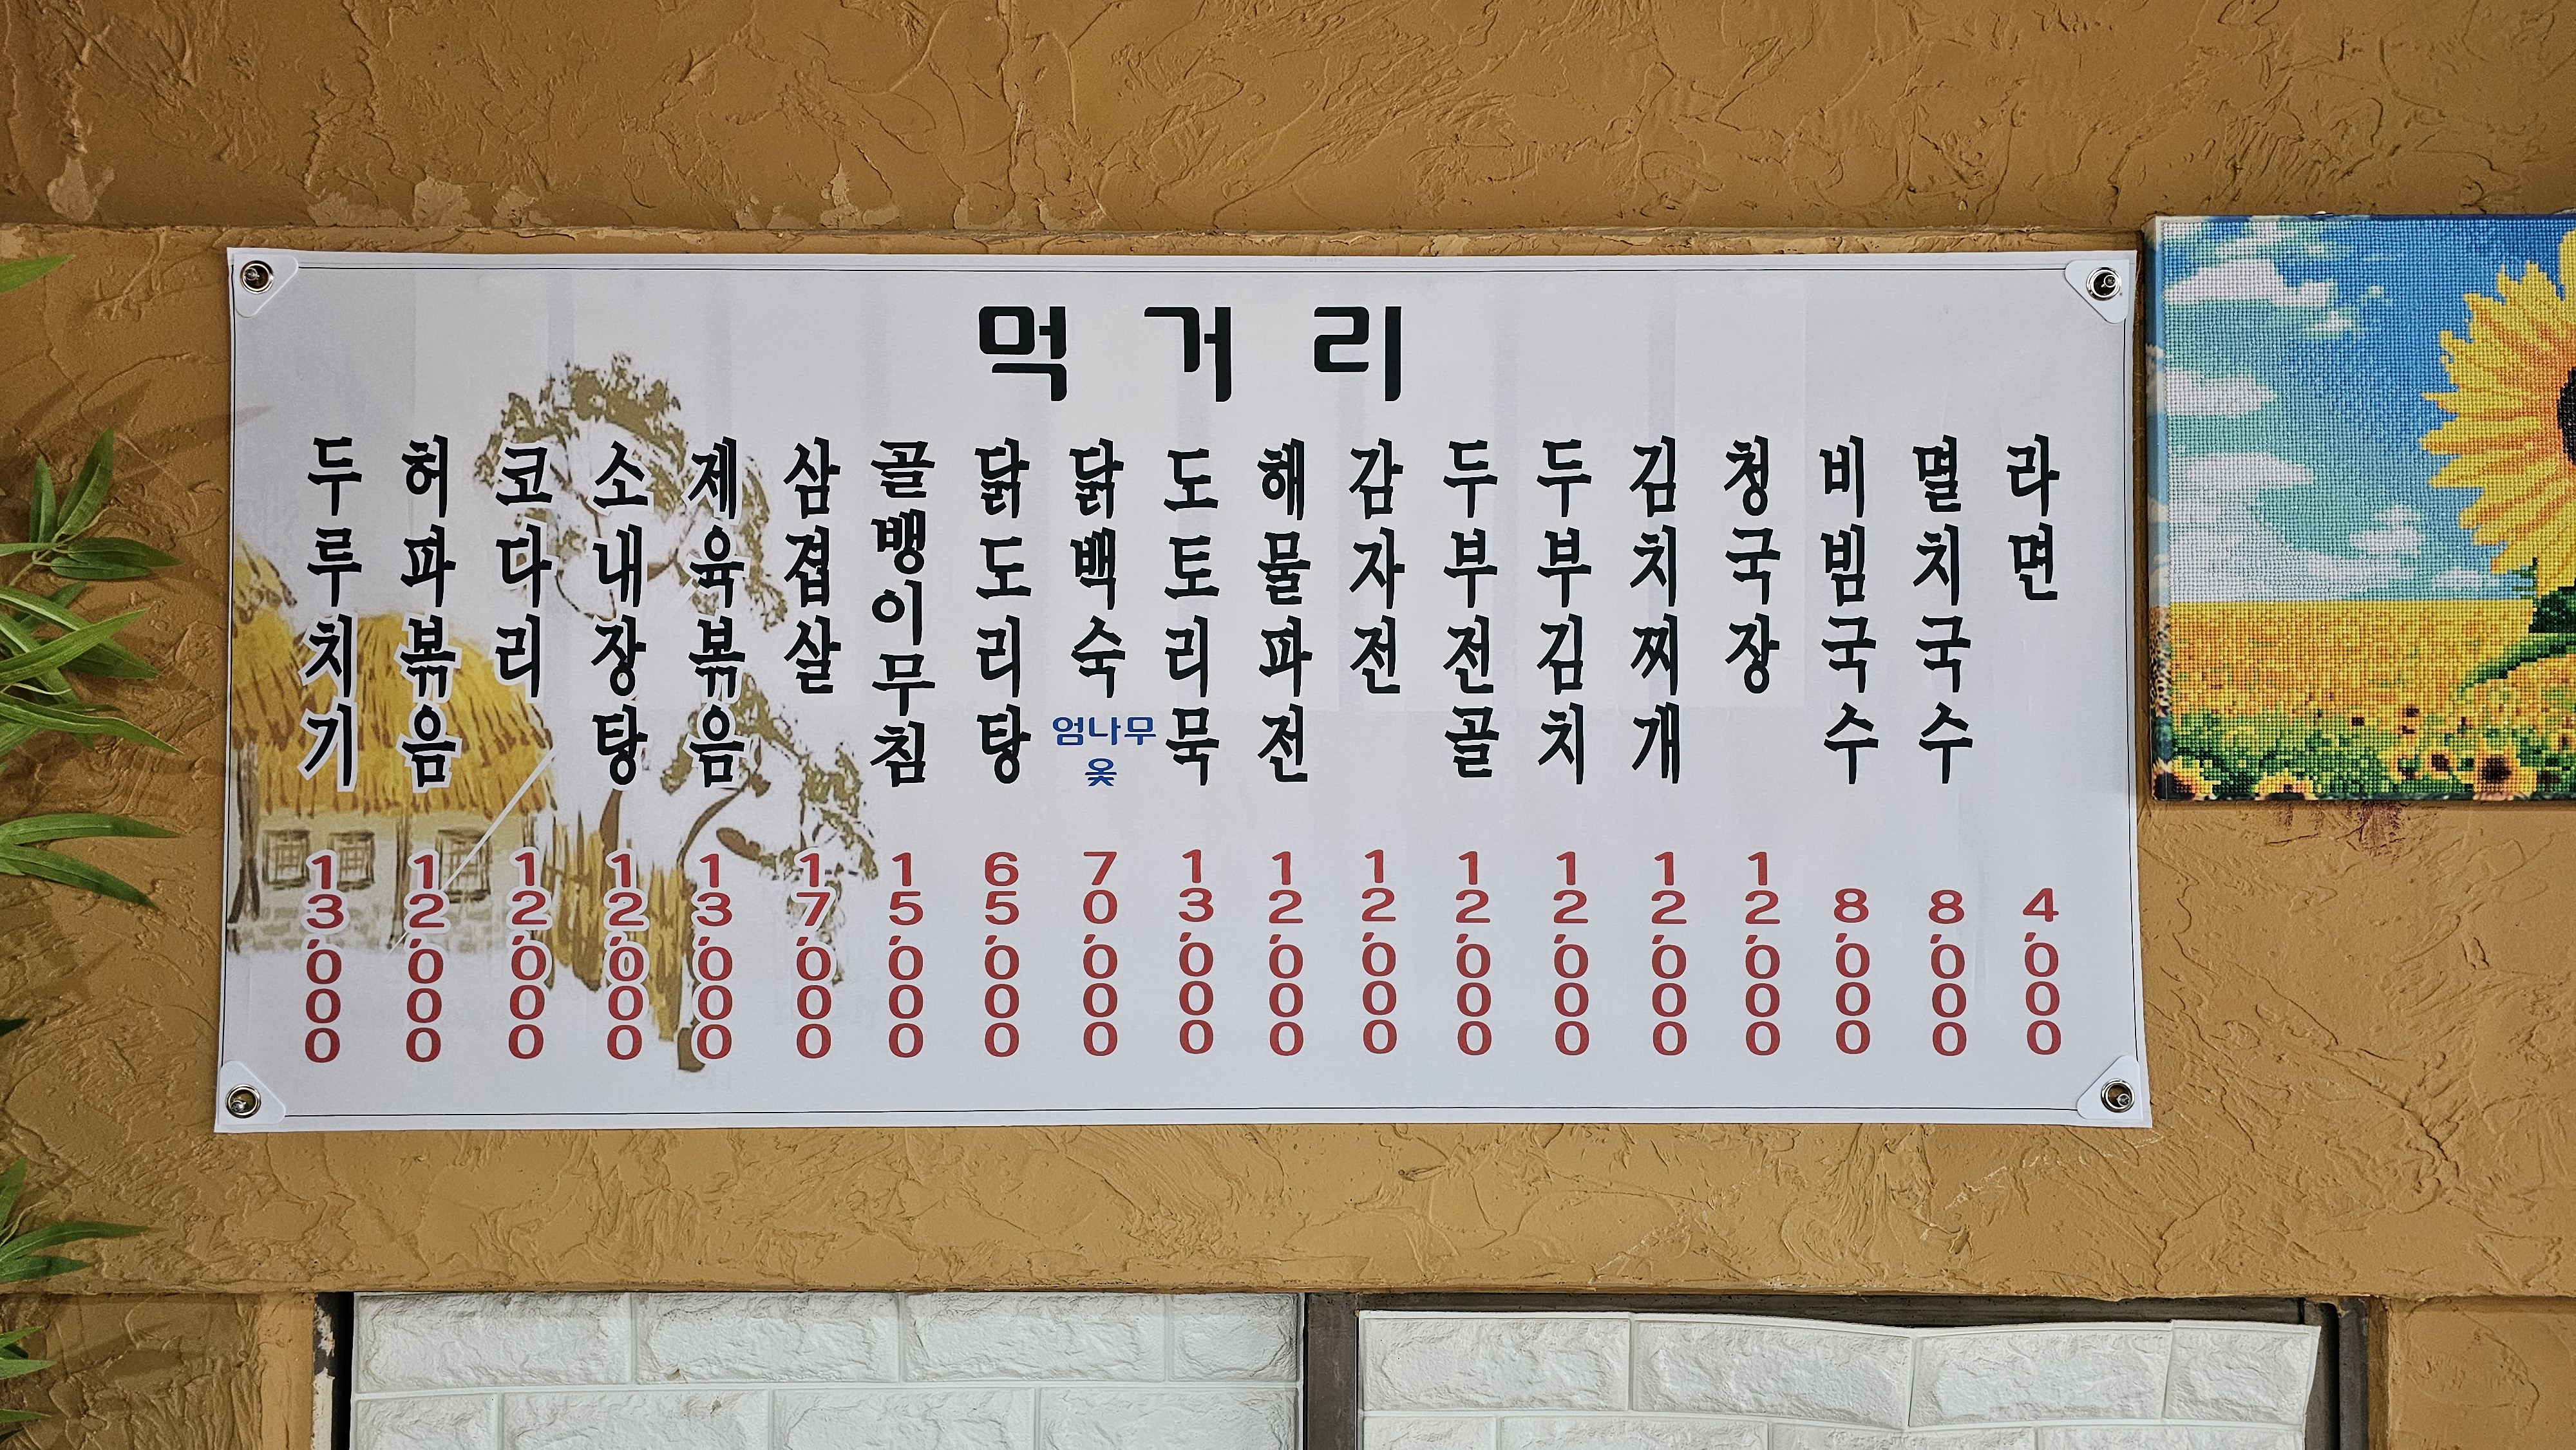 먹거리
두루치기 13,000
허파볶음 12,000
코다리 12,000
소내장탕 12,000
제육볶음 13,000
삼겹살 17,000
골뱅이무침 15,000
닭도리탕 65,000
닭백숙 엄나무 옻 70,000
도토리묵 13,000
해물파전 12,000
감자전 12,000
두부전골 12,000
두부김치 12,000
김치찌개 12,000
청국장 12,000
비빔국수 8,000
멸치국수 8,000
라면 4,000